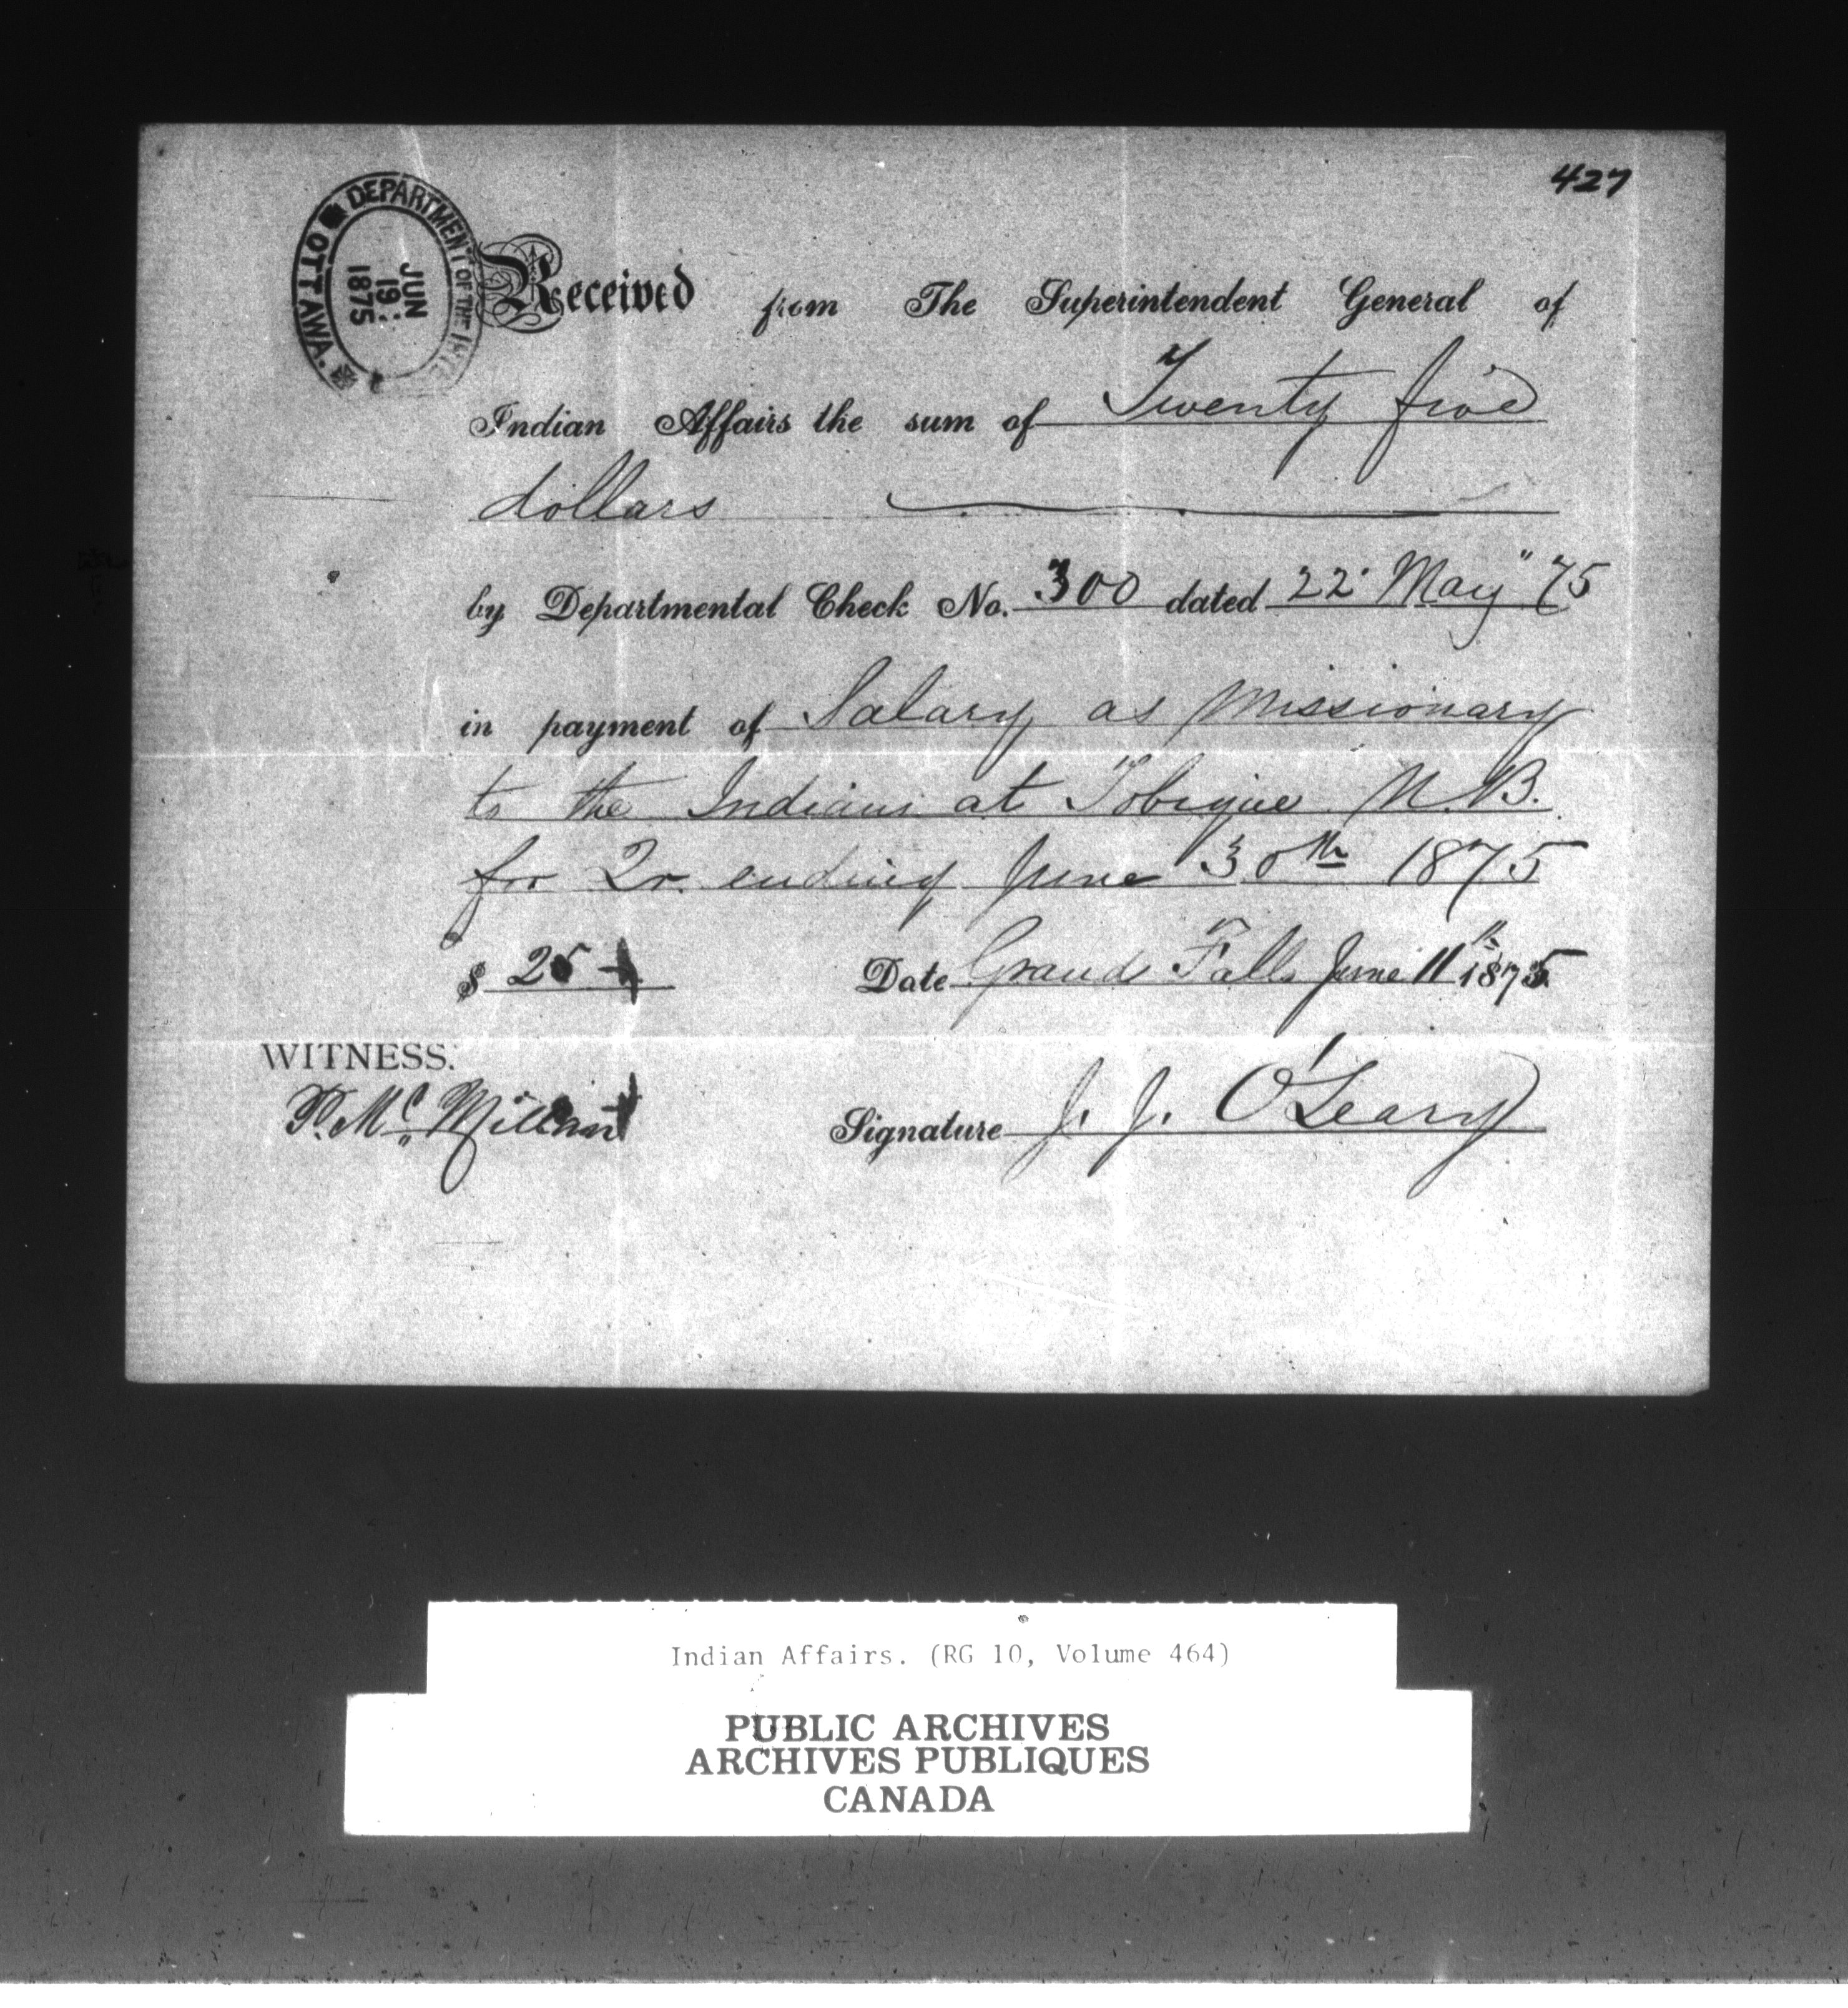 427
DEPARTMENT OF THE INTE
OTTAWA.
JUN
19.
1875
Received from The Superintendent General of
Indian Affairs the sum of Twenty five
dollars
by Departmental Check No. 300 dated 22" May 75
in payment of Salary as Missionary
to the Indians at Tobique N.B.
for Qr. ending June 30th 1875
$ 25 Date Grand Falls June 11" 1875
WITNESS.
P. Mc Millan Signature J. J. O'Leary
Indian Affairs. (RG 10, Volume 464)
PUBLIC ARCHIVES
ARCHIVES PUBLIQUES
CANADA